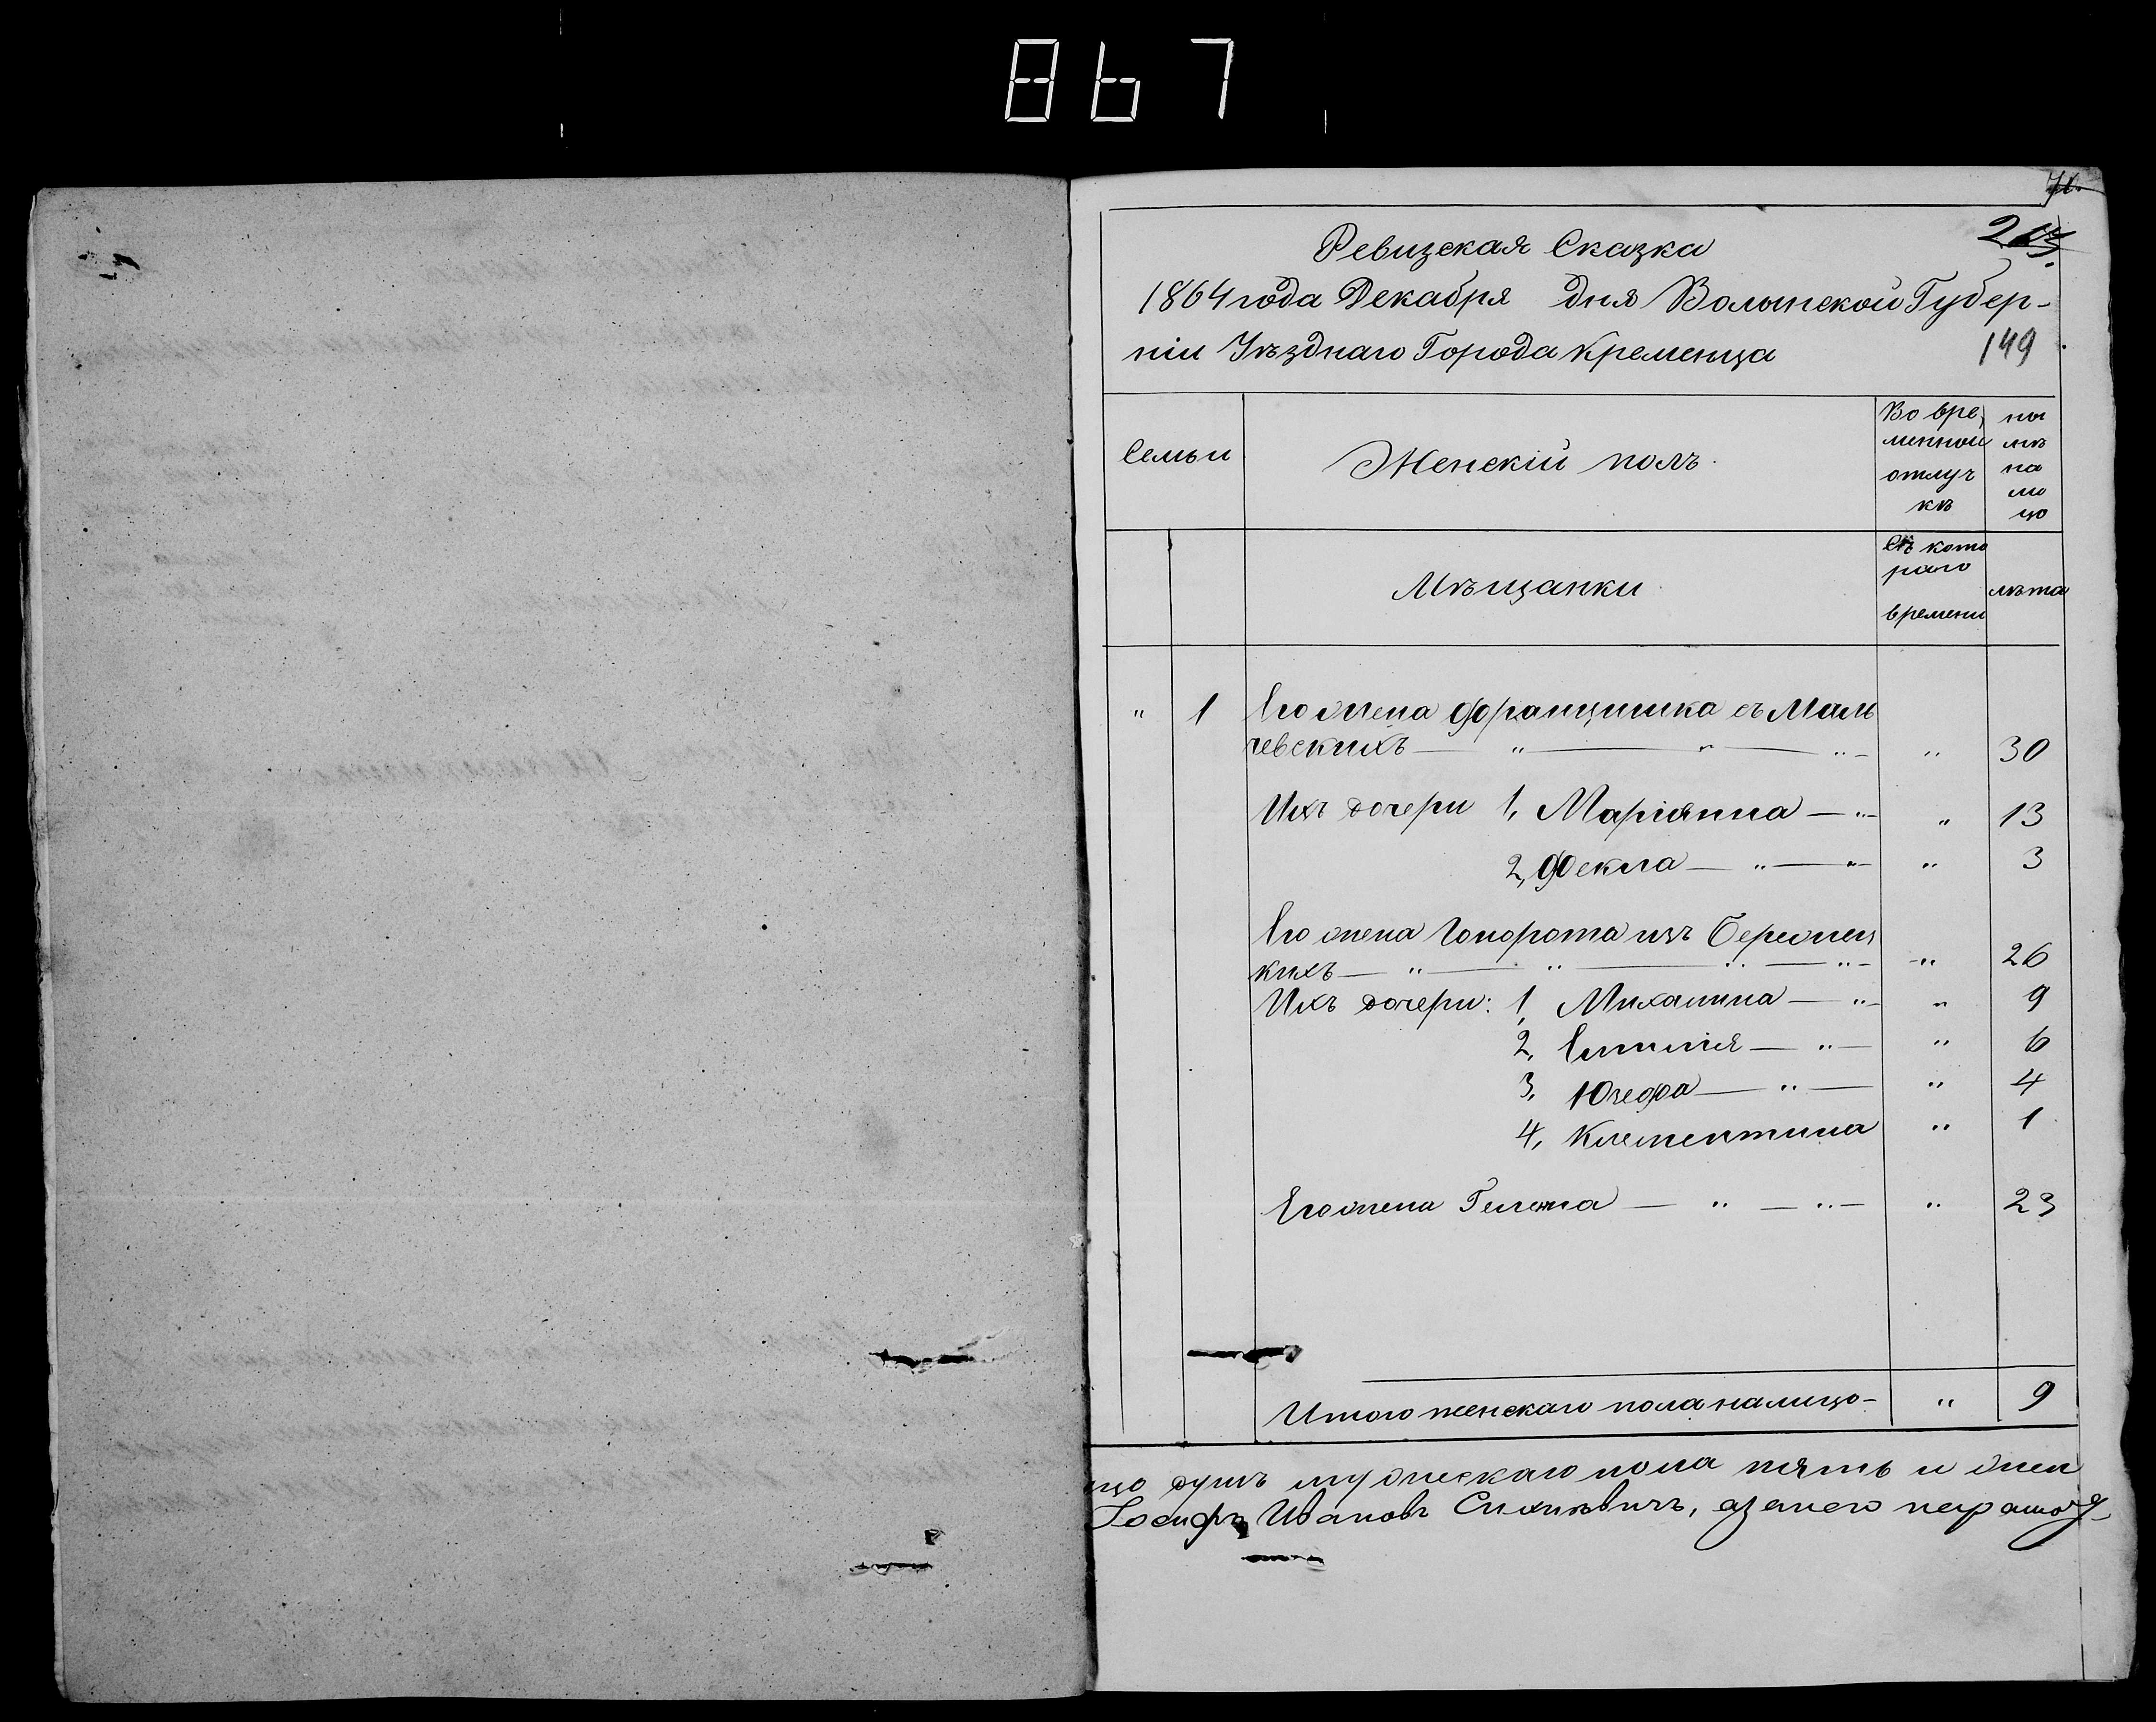 867
Ревизская Сказка
1864 года Декабря дня Волынской Губер-
ніи Уѣзднаго Города Кременца
149
Семьи
Женскій полъ.
Во вре,
менной
отлуч
кѣ
ны
нѣ
на
ли
цо
Мѣщанки
Съ кото
раго
времени
лѣта
" 1 Его жена Францишка съ Маль
чевскихъ — " — " — " — " 30
Ихъ дочери 1, Маріянна — " — " 13
2, Фекла — " — " — " 3
Его жена Гонората изъ Бережец
кихъ — " — " — " — " — " 26
Ихъ дочери: 1, Михалина — " — " 9
2, Емилія — " — " 6
3, Юзефа — " — " 4
4, Клементина " 1
Его жена Гелена — " — " — " 23
Итого женскаго пола налицо - " 9
цо душъ мужескаго пола пять и жен
Іосифъ Ивановъ